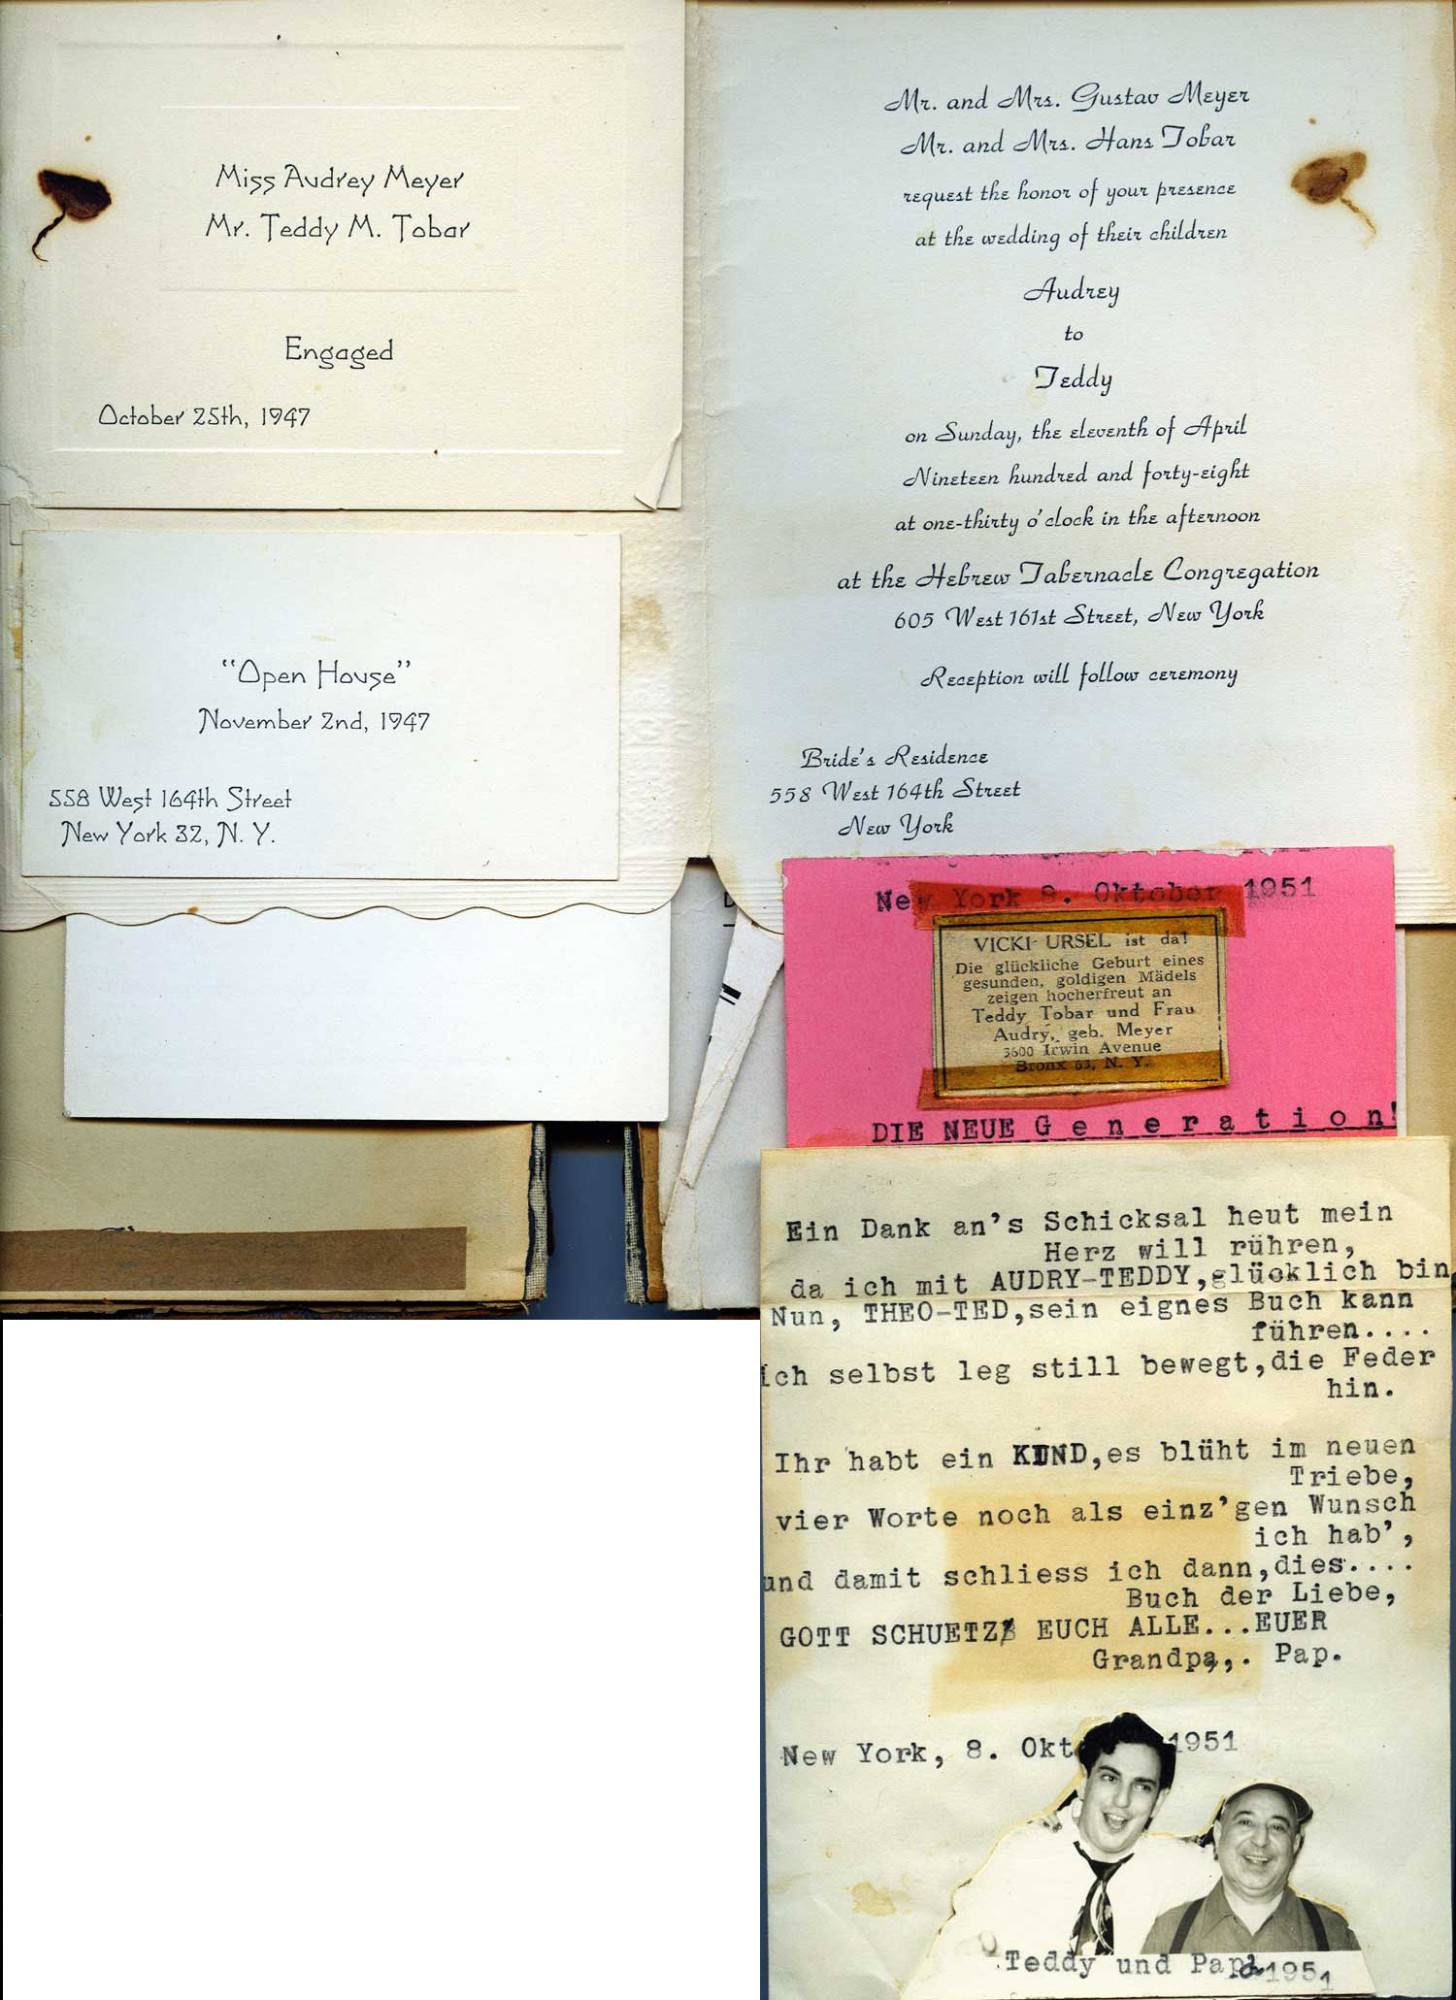 Miss Audrey Meyer
Mr. Teddy M. Tobar
Engaged
October 25th, 1947
"Open House"
November 2nd, 1947
558 West 164th Street
New York 32, N. Y.
Mr. and Mrs. Gustav Meyer
Mr. and Mrs. Hans Tobar
request the honor of your presence
at the wedding of their children
Audrey
to
Teddy
on Sunday, the eleventh of April
Nineteen hundred and forty-eight
at one-thirty o'clock in the afternoon
at the Hebrew Tabernacle Congregation
605 West 161st Street, New York
Reception will follow ceremony
Bride's Residence
558 West 164th Street
New York
New York 8. Oktober 1951
VICKI URSEL ist da!
Die glückliche Geburt eines
gesunden, goldigen Mädels
zeigen hocherfreut an
Teddy Tobar und Frau
Audry, geb. Meyer
3600 Irwin Avenue
Bronx 63, N. Y.
DIE NEUE Generation!
Ein Dank an's Schicksal heut mein
Herz will rühren,
da ich mit AUDRY-TEDDY,glücklich bin
Nun, THEO-TED,sein eignes Buch kann
führen....
ich selbst leg still bewegt,die Feder
hin.
Ihr habt ein KIND,es blüht im neuen
Triebe,
vier Worte noch als einz'gen Wunsch
ich hab',
und damit schliess ich dann,dies....
Buch der Liebe,
GOTT SCHUETZE EUCH ALLE...EUER
Grandpa,. Pap.
New York, 8. Okt 1951
Teddy und Papa 1951